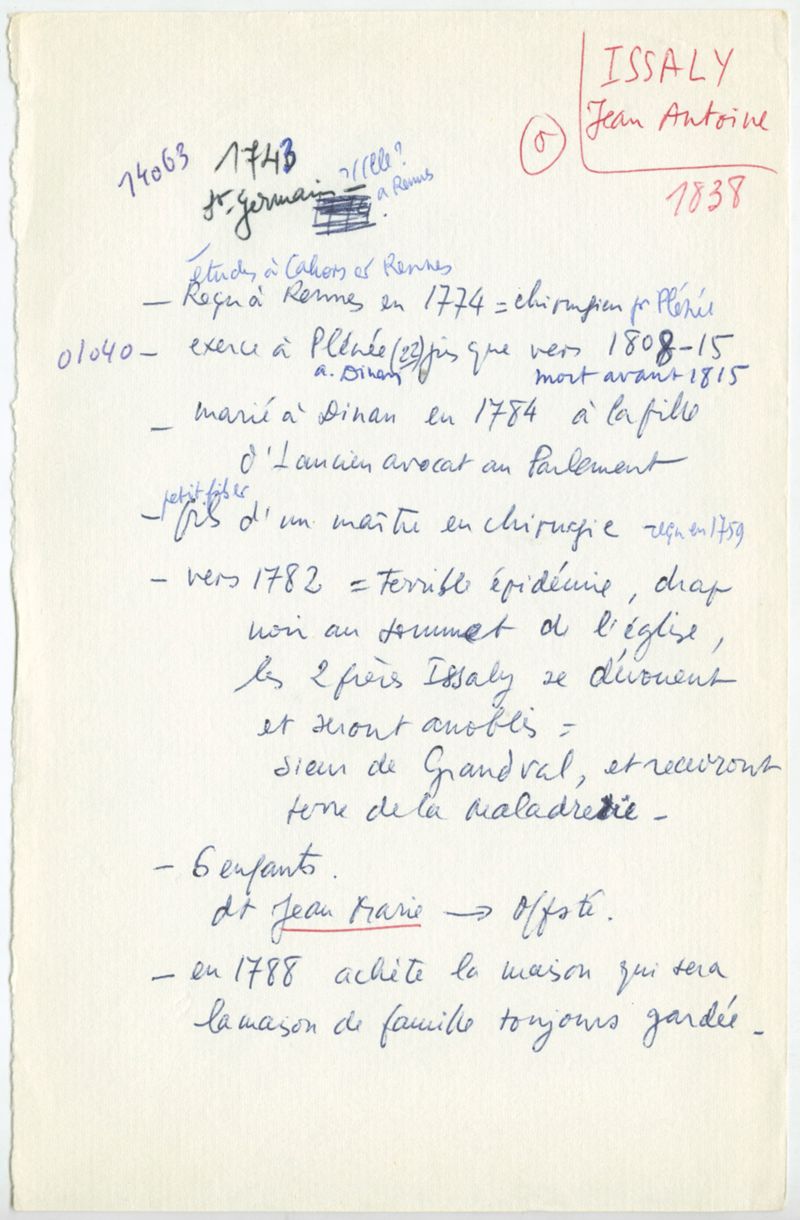 ISSALY
Jean Antoine
1838
14063 1743
St. Germain
à Rennes
études à Cahors et Rennes
— Reçu à Rennes en 1774 = chirurgien pr Plénée
01040 — exerce à Plénée (22) jusque vers 1808-15
a. Dinan mort avant 1815
— marié à Dinan en 1784 à la fille
d'1 ancien avocat au Parlement
petit fils et
— fils d'un maître en chirurgie reçu en 1759
— vers 1782 = Terrible épidémie, drap
noir au sommet de l'église,
les 2 frères Issaly se dévouent
et seront anoblis =
sieur de Grandval, et recevront
terre de la maladrerie —
— 6 enfants.
dt Jean Marie → Offsté.
— en 1788 achète la maison qui sera
la maison de famille toujours gardée —